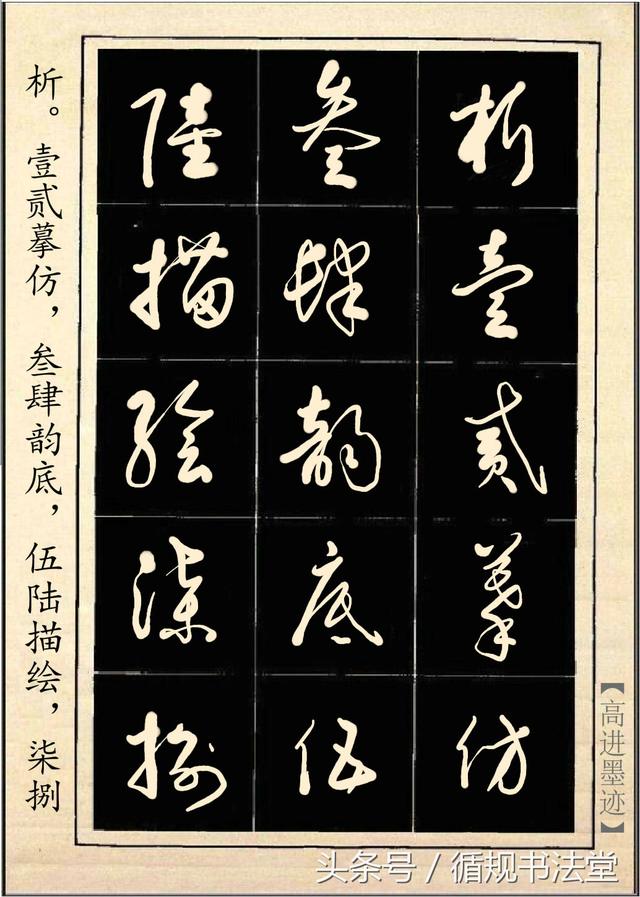 析壹贰摹仿
叁肆韵底伍
陆描绘柒捌
析。壹贰摹仿，叁肆韵底，伍陆描绘，柒捌
【高进墨迹】
头条号 / 循规书法堂